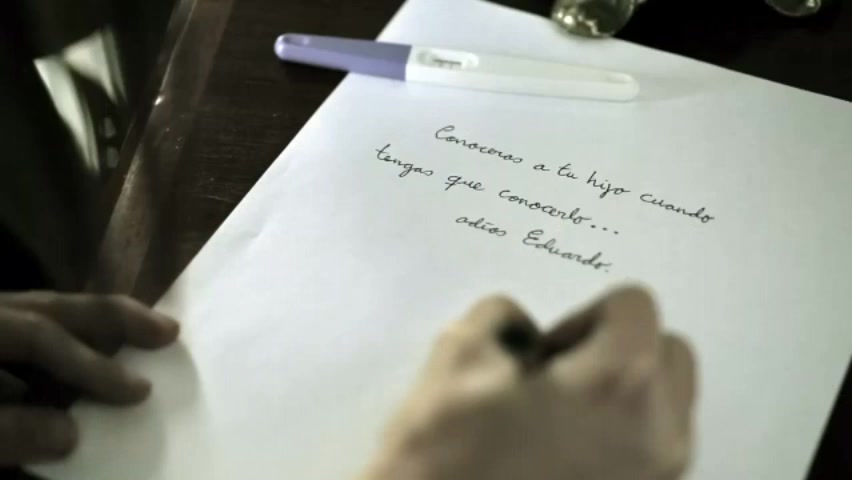 Conoceras a tu hijo cuando
tengas que conocerlo...
adios Eduardo.